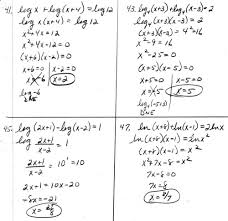 41. log x + log(x+4) = log 12
log x(x+4) = log 12
x²+4x = 12
x²+4x-12 = 0
(x+6)(x-2) = 0
x+6=0 x-2=0
x=-6 x=2
log -6
43. log₄(x+3)+log₄(x-3)=2
log₄(x+3)(x-3) = 2
(x+3)(x-3) = 4²=16
x²-9 = 16
x²-25 = 0
(x+5)(x-5) = 0
x+5=0 x-5=0
x=-5 x=5
45. log(2x+1)-log(x-2)=1
log 2x+1
x-2 = 1
2x+1
x-2 = 10¹ = 10
2x+1 = 10x-20
-8x = -21
47. ln(x+8)+ln(x-1)=2lnx
ln(x+8)(x-1) = ln x²
(x+8)(x-1) = x²
x²+7x-8 = x²
7x-8=0
7x=8
x = 8/7